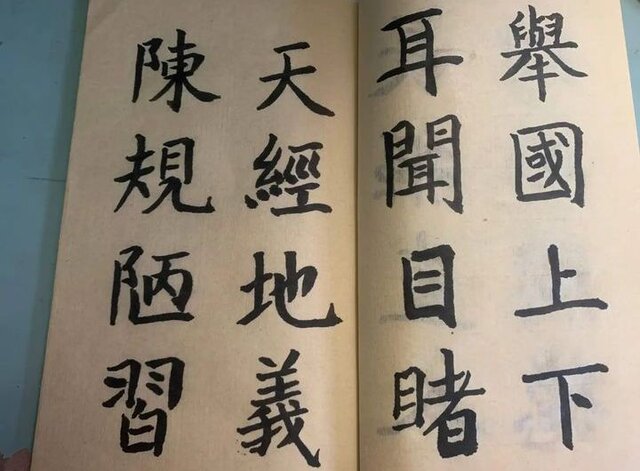 舉國上下
耳聞目睹
天經地義
陳規陋習